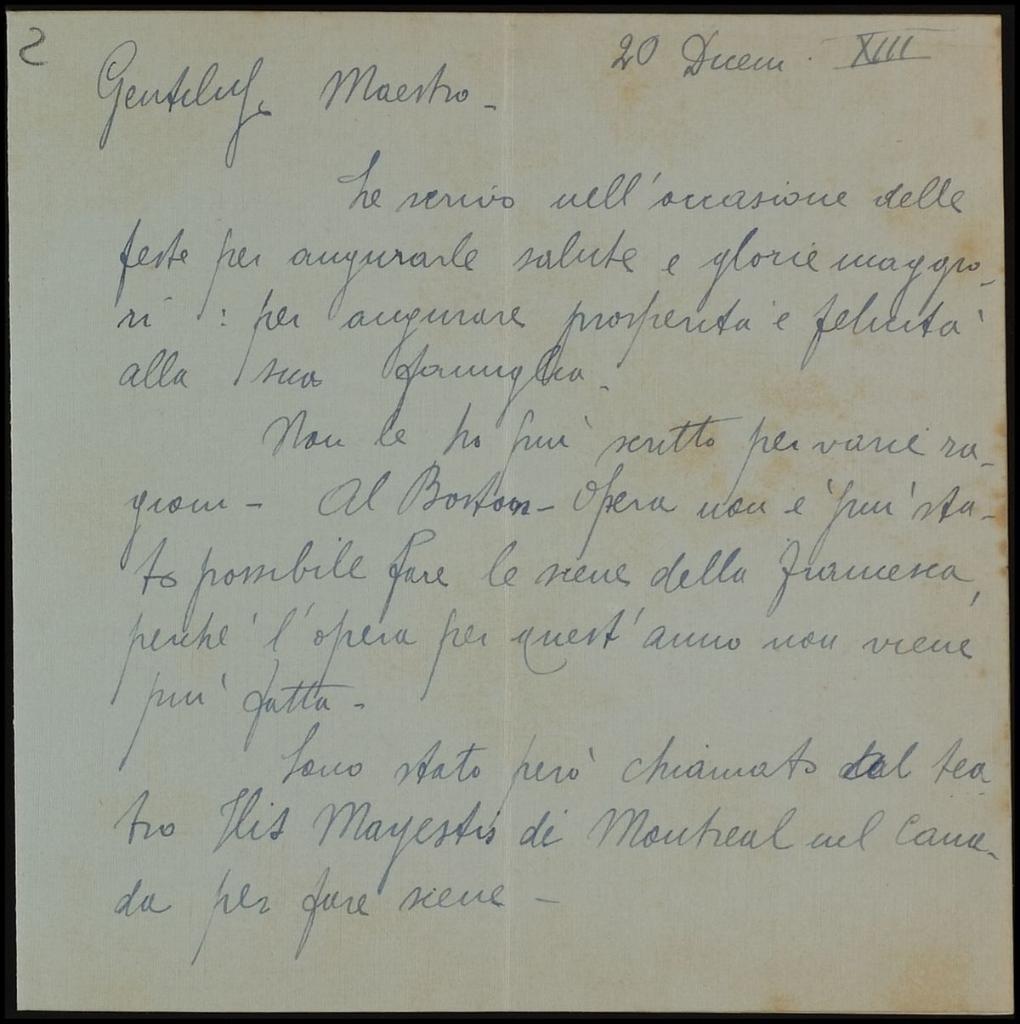 2
20 Dicem. XIII
Gentiliss. Maestro -
Le scrivo nell'occasione delle
feste per augurarle salute e glorie maggio-
ri : per augurare prosperità e felicità
alla sua famiglia -
Non le ho più scritto per varie ra-
gioni - Al Boston - Opera non e' più sta-
to possibile fare le scene della Francesca,
perche' l'opera per quest'anno non viene
più fatta -
Sono stato però chiamato dal tea
tro His Mayestis di Montreal nel Cana-
da per fare scene -